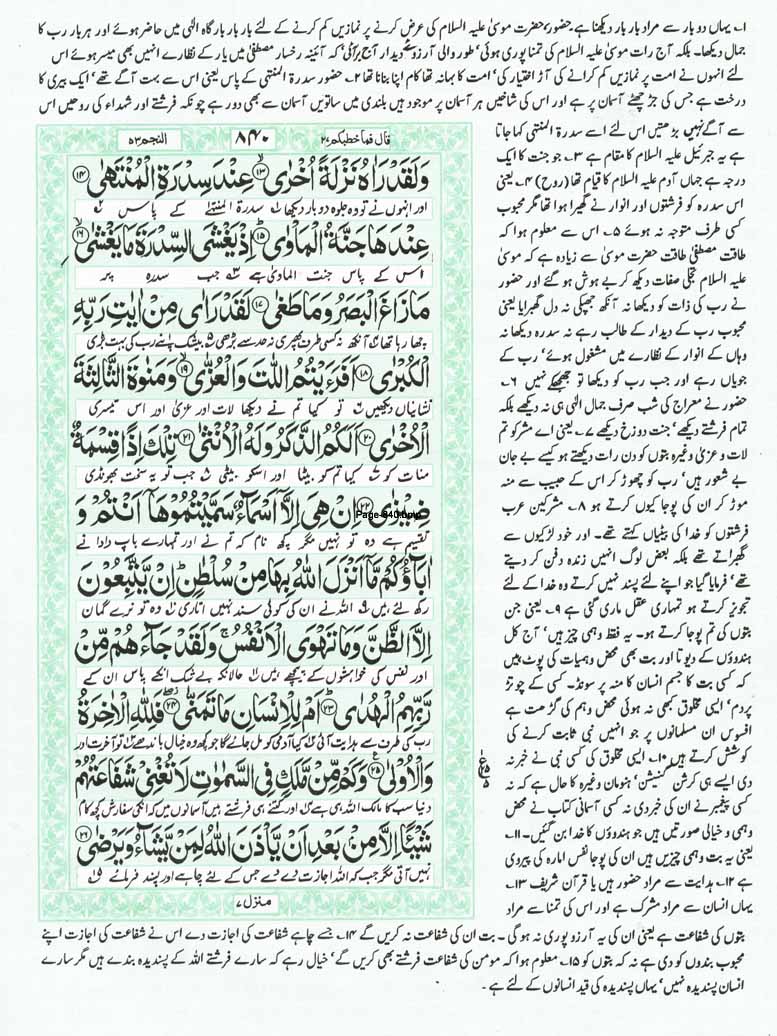 ۱؎ یہاں دو بار سے مراد بار بار دیکھنا ہے حضور، حضرت موسیٰ علیہ السلام کی عرض کرنے پر نمازیں کم کرنے کے لئے بار بار بارگاہ الٰہی میں حاضر ہوئے اور ہر بار رب کا
جمال دیکھا۔ بلکہ آج رات موسیٰ علیہ السلام کی تمنا پوری ہوئی' طور والی آرزوئے دیدار آج بر آئی' کہ آئینہ رخسار مصطفیٰ میں یار کے نظارے انہیں بھی میسر ہوئے اس
لئے انہوں نے امت پر نمازیں کم کرانے کی آڑ اختیار کی' امت کا بہانہ تھا کام اپنا بنانا تھا ۲؎ حضور سدرۃ المنتہی کے پاس یعنی اس سے بہت آگے تھے' ایک بیری کا
درخت ہے جس کی جڑ چھٹے آسمان پر ہے اور اس کی شاخیں ہر آسمان پر موجود ہیں بلندی میں ساتویں آسمان سے بھی دور ہے چونکہ فرشتے اور شہداء کی روحیں اس
سے آگے نہیں بڑھتیں اس لئے اسے سدرۃ المنتہی کہا جاتا
ہے یہ جبرئیل علیہ السلام کا مقام ہے ۳؎ جو جنت کا ایک
درجہ ہے جہاں آدم علیہ السلام کا قیام تھا (روح) ۴؎ یعنی
اس سدرہ کو فرشتوں اور انوار نے گھیرا ہوا تھا مگر محبوب
کسی طرف متوجہ نہ ہوئے ۵؎ اس سے معلوم ہوا کہ
طاقت مصطفیٰ طاقت حضرت موسیٰ سے زیادہ ہے کہ موسیٰ
علیہ السلام تجلی صفات دیکھ کر بے ہوش ہو گئے اور حضور
نے رب کی ذات کو دیکھا نہ آنکھ جھپکی نہ دل گھبرایا یعنی
محبوب رب کے دیدار کے طالب رہے نہ سدرہ دیکھا نہ
وہاں کے انوار کے نظارے میں مشغول ہوئے' رب کے
جویاں رہے اور جب رب کو دیکھا تو جھجکے نہیں ۶؎
حضور نے معراج کی شب صرف جمال الٰہی ہی نہ دیکھے بلکہ
تمام فرشتے دیکھے' جنت دوزخ دیکھے ۷؎ یعنی اے مشرکو تم
لات و عزیٰ وغیرہ بتوں کو دن رات دیکھتے ہو کیسے بے جان
بے شعور ہیں' رب کو چھوڑ کر اس کے حبیب سے منہ
موڑ کر ان کی پوجا کیوں کرتے ہو ۸؎ مشرکین عرب
فرشتوں کو خدا کی بیٹیاں کہتے تھے۔ اور خود لڑکیوں سے
گھبراتے تھے بلکہ بعض لوگ انہیں زندہ دفن کر دیتے
تھے' فرمایا گیا جو اپنے لئے پسند نہیں کرتے وہ خدا کے لئے
تجویز کرتے ہو تمہاری عقل ماری گئی ہے ۹؎ یعنی جن
بتوں کی تم پوجا کرتے ہو۔ یہ فقط وہمی چیز ہیں' آج کل
ہندوؤں کے دیوتا اور بت بھی محض وہمیات کی پوٹ ہیں
کہ کسی بت کا جسم انسان کا منہ پر سونڈ۔ کسی کے چوتڑ
پر دم' ایسی مخلوق کبھی نہ ہوئی محض وہم کی گڑھت ہے
افسوس ان مسلمانوں پر جو انہیں نبی ثابت کرنے کی
کوشش کرتے ہیں ۱۰؎ ایسی مخلوق کی کسی نبی نے خبر نہ
دی ایسے ہی کرشن گنیش' ہنومان وغیرہ کا حال ہے کہ نہ
کسی پیغمبر نے ان کی خبر دی نہ کسی آسمانی کتاب نے محض
وہمی و خیالی صورتیں ہیں جو ہندوؤں کا خدا بن گئیں۔ ۱۱؎
یعنی یہ بت وہمی چیزیں ہیں ان کی پوجا نفس امارہ کی پیروی
ہے ۱۲؎ ہدایت سے مراد حضور ہیں یا قرآن شریف ۱۳؎
یہاں انسان سے مراد مشرک ہے اور اس کی تمنا سے مراد
قال فما خطبکم ۲۷ ۸۴۰ النجم ۵۳
وَلَقَدْ رَاٰهُ نَزْلَةً اُخْرٰی ﴿۱۳﴾ عِنْدَ سِدْرَةِ الْمُنْتَهٰی ﴿۱۴﴾
اور انہوں نے تو وہ جلوہ دوبار دیکھا ۱؎ سدرۃ المنتہٰے کے پاس ۲؎
عِنْدَهَا جَنَّةُ الْمَاْوٰی ﴿۱۵﴾ اِذْ یَغْشَی السِّدْرَةَ مَا یَغْشٰی ﴿۱۶﴾
اس کے پاس جنت الماویٰ ہے ۳؎ جب سدرہ پر
مَا زَاغَ الْبَصَرُ وَمَا طَغٰی ﴿۱۷﴾ لَقَدْ رَاٰی مِنْ اٰیٰتِ رَبِّهِ
چھا رہا تھا ۴؎ آنکھ نہ کسی طرف پھری نہ حد سے بڑھی ۵؎ بیشک اپنے رب کی بہت بڑی
الْکُبْرٰی ﴿۱۸﴾ اَفَرَءَیْتُمُ اللّٰتَ وَالْعُزّٰی ﴿۱۹﴾ وَمَنٰوةَ الثَّالِثَةَ
نشانیاں دیکھیں ۶؎ تو کیا تم نے دیکھا لات اور عزیٰ اور اس تیسری
الْاُخْرٰی ﴿۲۰﴾ اَلَکُمُ الذَّکَرُ وَلَهُ الْاُنْثٰی ﴿۲۱﴾ تِلْكَ اِذًا قِسْمَةٌ
منات کو ۷؎ کیا تم کو بیٹا اور اسکو بیٹی ۸؎ جب تو یہ سخت بھونڈی
ضِیْزٰی ﴿۲۲﴾ اِنْ هِیَ اِلَّا اَسْمَآءٌ سَمَّیْتُمُوْهَاۤ اَنْتُمْ وَ
Page-840.bmp
تقسیم ہے وہ تو نہیں مگر کچھ نام کہ تم نے اور تمہارے باپ دادا نے
اٰبَآؤُکُمْ مَّاۤ اَنْزَلَ اللّٰهُ بِهَا مِنْ سُلْطٰنٍ اِنْ یَّتَّبِعُوْنَ
رکھ لئے ہیں ۹؎ اللہ نے ان کی کوئی سند نہیں اتاری ۱۰؎ وہ تو نرے گمان
اِلَّا الظَّنَّ وَمَا تَهْوَی الْاَنْفُسُ وَلَقَدْ جَآءَهُمْ مِّنْ
اور نفس کی خواہشوں کے پیچھے ہیں ۱۱؎ حالانکہ بے شک انکے پاس ان کے
رَّبِّهِمُ الْهُدٰی ﴿۲۳﴾ اَمْ لِلْاِنْسَانِ مَا تَمَنّٰی ﴿۲۴﴾ فَلِلّٰهِ الْاٰخِرَةُ
رب کی طرف سے ہدایت آئی ۱۲؎ کیا آدمی کو مل جائے گا جو کچھ وہ خیال باندھے ۱۳؎ تو آخرت اور
وَالْاُوْلٰی ﴿۲۵﴾ وَکَمْ مِّنْ مَّلَكٍ فِی السَّمٰوٰتِ لَا تُغْنِیْ شَفَاعَتُهُمْ
دنیا سب کا مالک اللہ ہی ہے اور کتنے ہی فرشتے ہیں آسمانوں میں کہ انکی سفارش کچھ کام
شَیْئًا اِلَّا مِنْۢ بَعْدِ اَنْ یَّاْذَنَ اللّٰهُ لِمَنْ یَّشَآءُ وَیَرْضٰی ﴿۲۶﴾
نہیں آتی مگر جب کہ اللہ اجازت دے دے جس کے لئے چاہے اور پسند فرمائے
منزل ۷
بتوں کی شفاعت ہے یعنی ان کی یہ آرزو پوری نہ ہو گی۔ بت ان کی شفاعت نہ کریں گے ۱۴؎ جسے چاہے شفاعت کی اجازت دے اس نے شفاعت کی اجازت اپنے
محبوب بندوں کو دی ہے نہ کہ بتوں کو ۱۵؎ معلوم ہوا کہ مومن کی شفاعت فرشتے بھی کریں گے' خیال رہے کہ سارے فرشتے اللہ کے پسندیدہ بندے ہیں مگر سارے
انسان پسندیدہ نہیں' یہاں پسندیدہ کی قید انسانوں کے لئے ہے۔